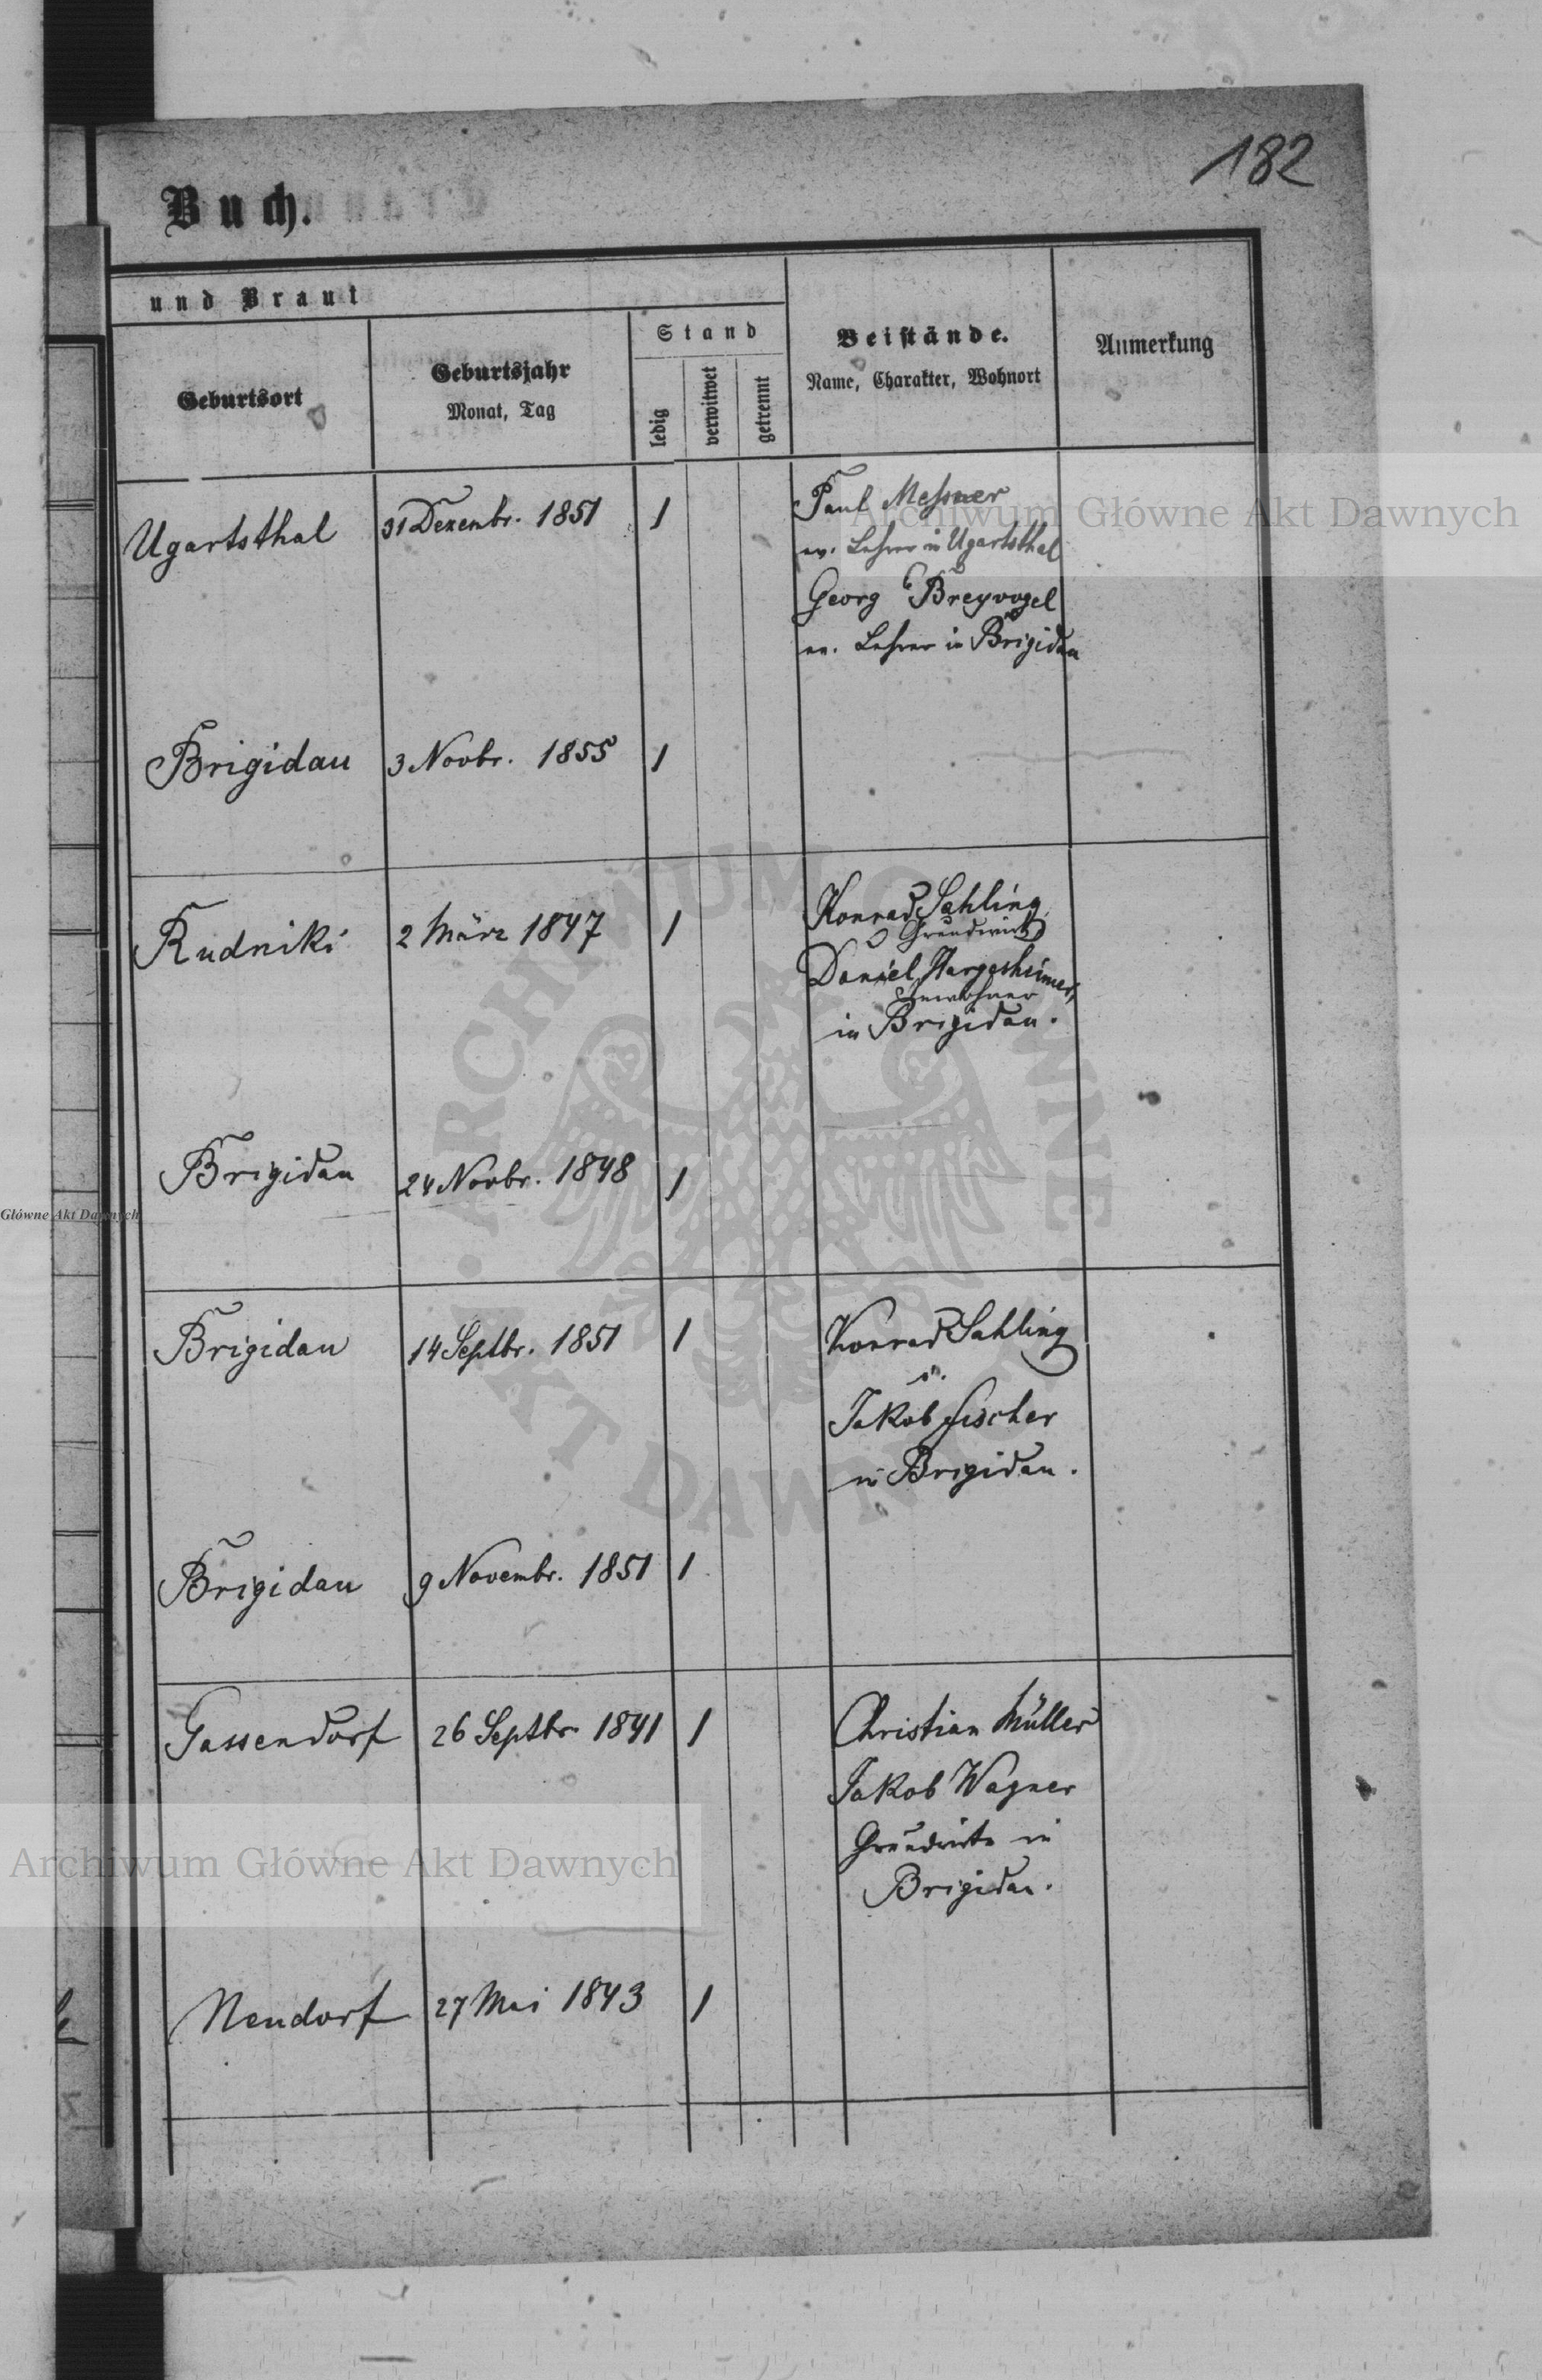 182
Buch.
und Braut
Geburtsort
Geburtsjahr
Monat, Tag
Stand
ledig
verwitwet
getrennt
Beistände.
Name, Charakter, Wohnort
Anmerkung
Ugartsthal 31 Dezembr. 1851 1
Paul Messner
ev. Lehrer in Ugartsthal
Georg Breyvogel
ev. Lehrer in Brigidau
Brigidau 3 Novbr. 1855 1
Rudniki 2 März 1847 1
Konrad Sahling,
Grundwirth
Daniel Hargesheimer,
Inwohner
in Brigidau.
Brigidau 24 Novbr. 1848 1
Brigidau 14 Septbr. 1851 1
Konrad Sahling
u.
Jakob Fischer
in Brigidau.
Brigidau 9 Novembr. 1851 1
Gassendorf 26 Septbr 1841 1
Christian Müller
Jakob Wagner
Grundwirte in
Brigidau.
Neudorf 27 Mai 1843 1
Archiwum Główne Akt Dawnych
Główne Akt Dawnych
Archiwum Główne Akt Dawnych
ARCHIWUM GŁÓWNE · AKT DAWNYCH ·